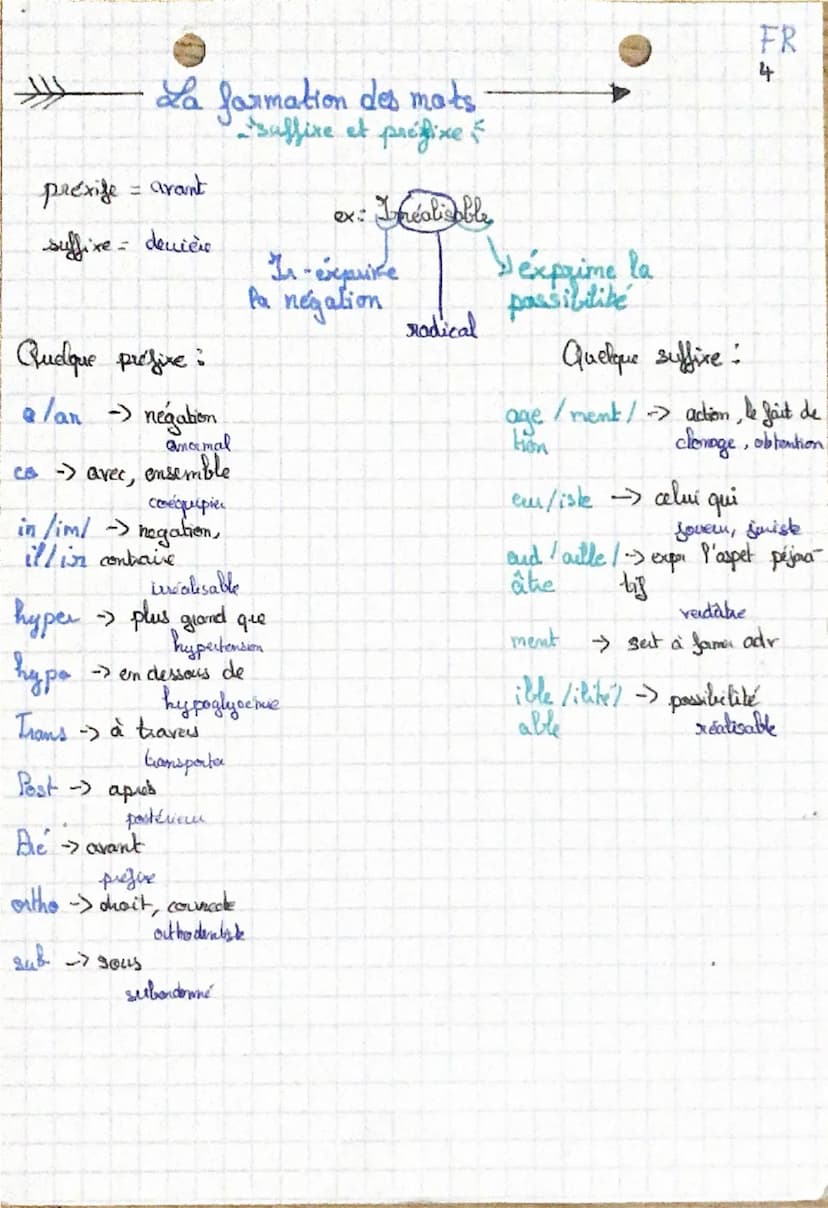 FR
4
La formation des mots
suffixe et préfixe
préxife = avant
suffixe = derrière
ex: Irréalisable
Ir - exprime
la négation
radical
exprime la
possibilité
Quelque préfixe :
a/an -> négation
anormal
co -> avec, ensemble
coéquipier
in/im/ -> negation,
il/ir contraire
irréalisable
hyper -> plus grand que
hypertension
hypo -> en dessous de
hypoglycemie
Trans -> à travers
transporter
Post -> après
postérieur
Pré -> avant
préfixe
ortho -> droit, correcte
orthodentiste
sub -> sous
subordonné
Quelque suffixe :
age / ment / -> action, le fait de
tion
clonage, obtention
eur/iste -> celui qui
joueur, juriste
aud / aille / -> expr l'aspet péjora-
âtre tif
verdâtre
ment -> sert à former adv
ible /ilité/ -> possibilité
able réalisable